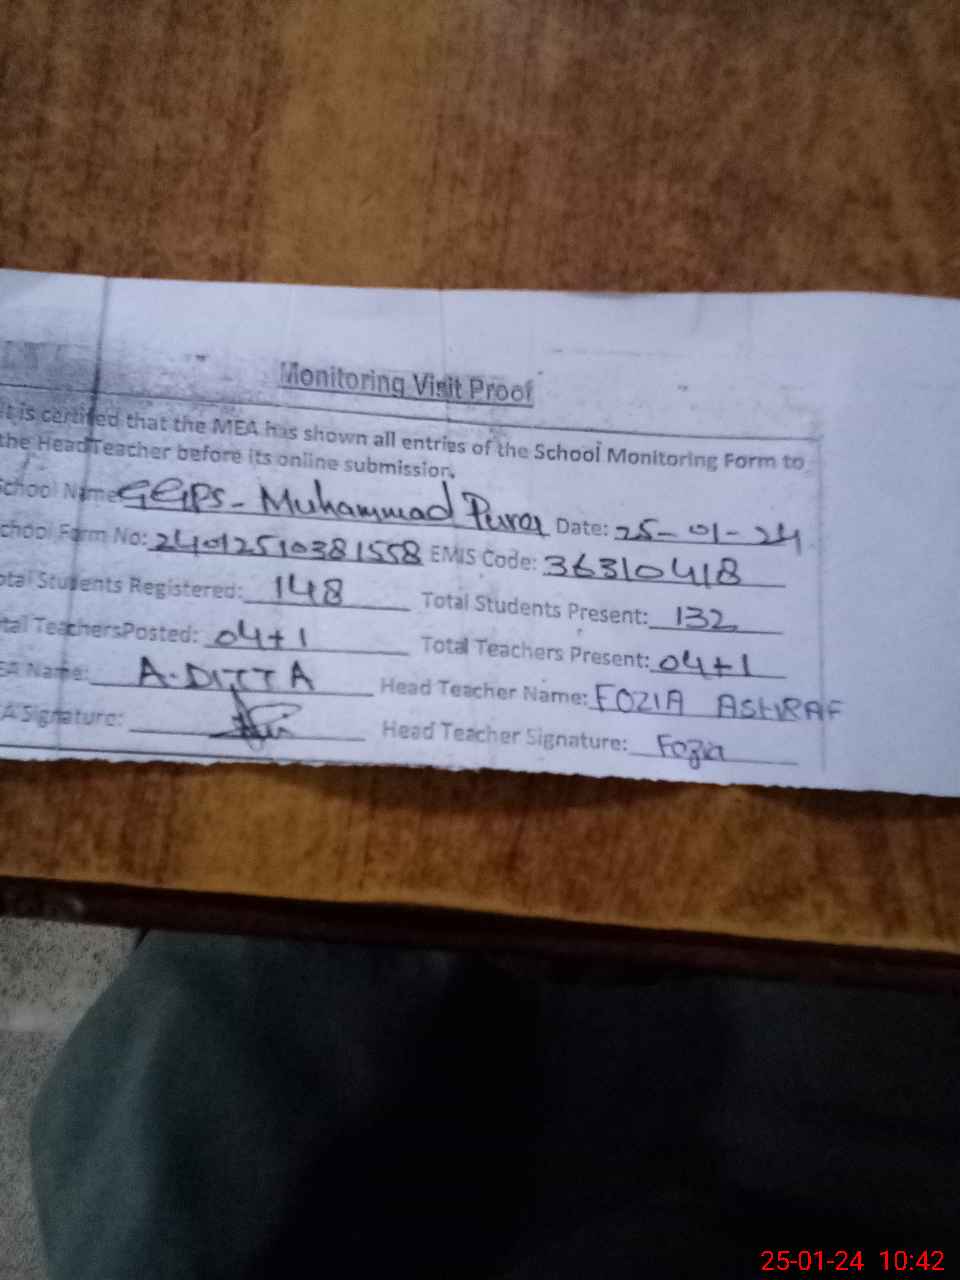 Monitoring Visit Proof
It is certified that the MEA has shown all entries of the School Monitoring Form to
the HeadTeacher before its online submission.
School Name GGPS- Muhammad Date: 25-01-24
chool Form No: 24012510381558 EMIS Code: 36310418
otal Students Registered: 148 Total Students Present: 132
tal TeachersPosted: 04+1 Total Teachers Present: 04+1
EA Name: A.DITTA Head Teacher Name: FOZIA ASHRAF
A Signature: Head Teacher Signature: Fozia
25-01-24 10:42